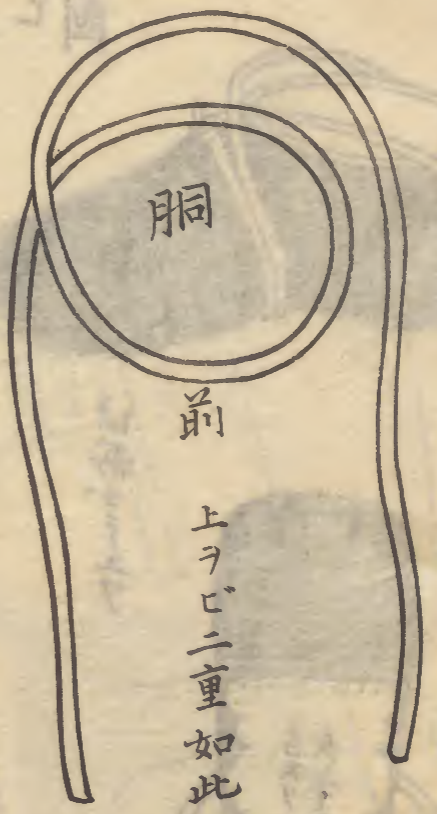 胴
前
上ヲビ二重如此